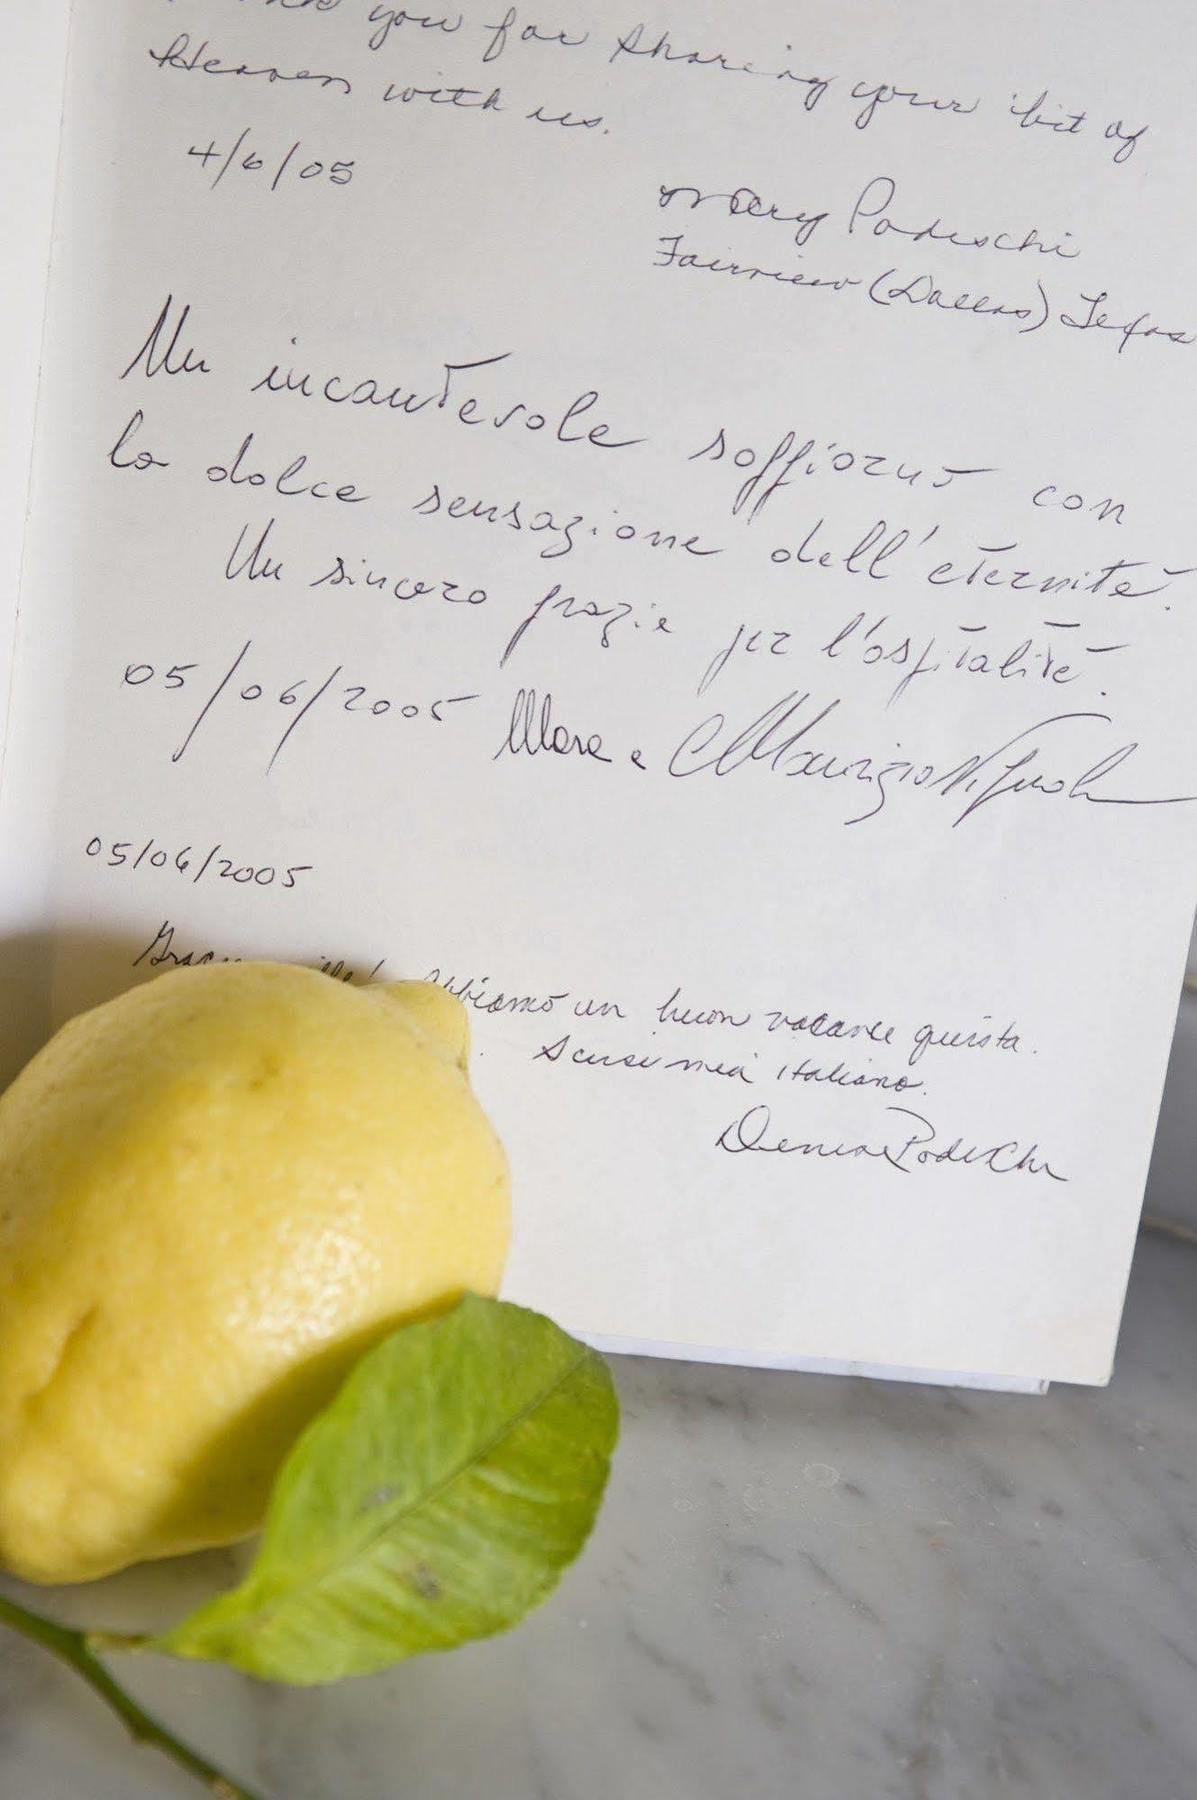 you for sharing your bit of
Heaven with us.
4/6/05
Mary Podeschi
Fairview (Dallas) Texas
Un incantevole soffiorno con
la dolce sensazione dell'eternità.
Un sincero grazie per l'ospitalità.
05/06/2005 Mara e Maurizio
05/06/2005
mille! Abbiamo un buon vacance questa.
Scusi mia italiano.
Denise Podeschi